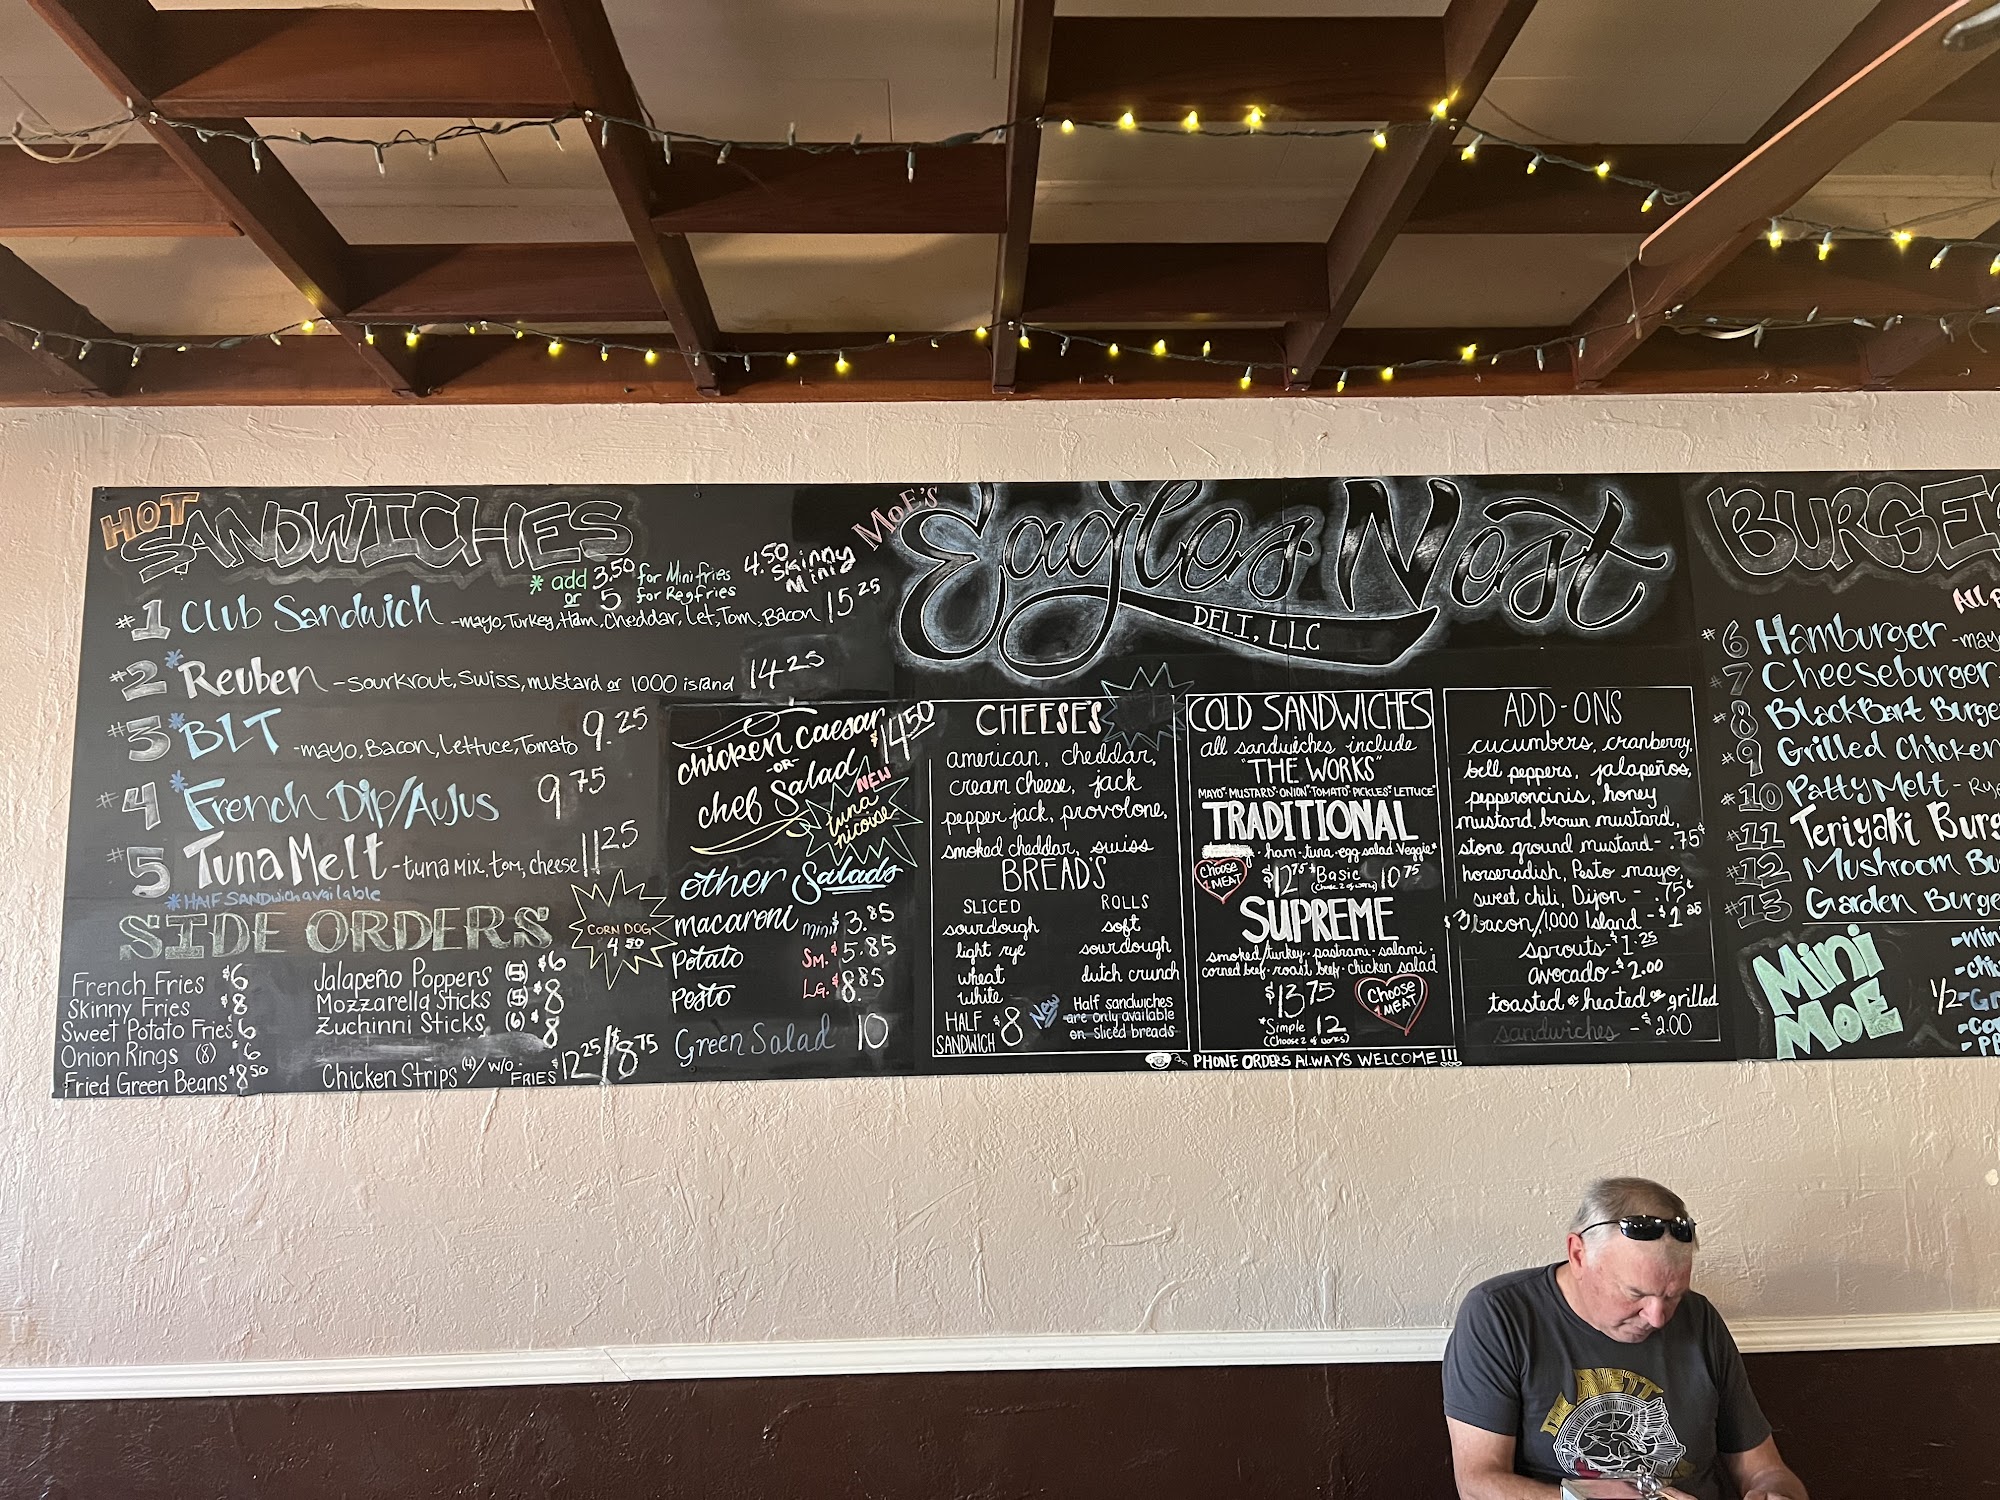 HOT SANDWICHES
* add 3.50 for Mini fries
or 5 for Reg fries
4.50 Skinny Mini
#1 Club Sandwich - mayo, Turkey, Ham, Cheddar, Let, Tom, Bacon 15 25
#2 * Reuben - sourkrout, swiss, mustard or 1000 island 14 25
#3 * BLT - mayo, Bacon, Lettuce, Tomato 9.25
#4 * French Dip/AuJus 9 75
#5 Tuna Melt - tuna mix, tom, cheese 11 25
* HALF SANDwich available
SIDE ORDERS
CORN DOG 4 50
French Fries $6
Skinny Fries $8
Sweet Potato Fries $6
Onion Rings (8) $6
Fried Green Beans $8 50
Jalapeño Poppers (5) $6
Mozzarella Sticks (5) $8
Zuchinni Sticks (6) $8
Chicken Strips (4) / W/O FRIES $12 25 / $8 75
chicken caesar
-OR-
chef Salad $14 50
NEW tuna nicoise
other Salads
macaroni mini $3.85
potato Sm. $5.85
pesto LG. $8.85
Green Salad 10
MOE'S
Eagles Nest
DELI, LLC
CHEESE'S
american, cheddar,
cream cheese, jack
pepper jack, provolone,
smoked cheddar, swiss
BREAD'S
SLICED
sourdough
light rye
wheat
white
ROLLS
soft
sourdough
dutch crunch
HALF SANDWICH $8
New Half sandwiches
are only available
on sliced breads
COLD SANDWICHES
all sandwiches include
"THE WORKS"
MAYO • MUSTARD • ONION • TOMATO • PICKLES • LETTUCE
TRADITIONAL
• ham • tuna • egg salad Veggie*
Choose 1 MEAT
$12 75 * Basic 10 75
(Choose 2 of works)
SUPREME
smoked turkey • pastrami • salami •
corned beef • roast beef • chicken salad
$13 75
Choose 1 MEAT
* Simple 12
(Choose 2 of works)
PHONE ORDERS ALWAYS WELCOME!!!
ADD-ONS
cucumbers, cranberry,
bell peppers, jalapeños,
pepperoncinis, honey
mustard, brown mustard,
stone ground mustard - .75¢
horseradish, Pesto mayo,
sweet chili, Dijon - .75¢
$3 bacon/1,000 Island - $1 25
sprouts - $1.25
avocado - $2.00
toasted or heated or grilled
sandwiches - $2.00
BURGE
All
#6 Hamburger - may
#7 Cheeseburger
#8 Black Bart Burge
#9 Grilled Chicken
#10 Patty Melt - Rye
#11 Teriyaki Burg
#12 Mushroom Bu
#13 Garden Burge
Mini MOE
1/2
THE AVETT